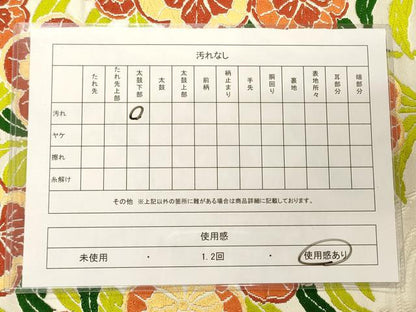 汚れなし
たれ先 たれ先上部 太鼓下部 太鼓 太鼓上部 前柄 納止まり 手先 胴回り 裏地 表地所々 耳部分 端部分
汚れ
ヤケ
擦れ
糸解け
その他 ※上記以外の箇所に難がある場合は商品詳細に記載しております。
使用感
未使用 ・ 1.2回 ・ 使用感あり